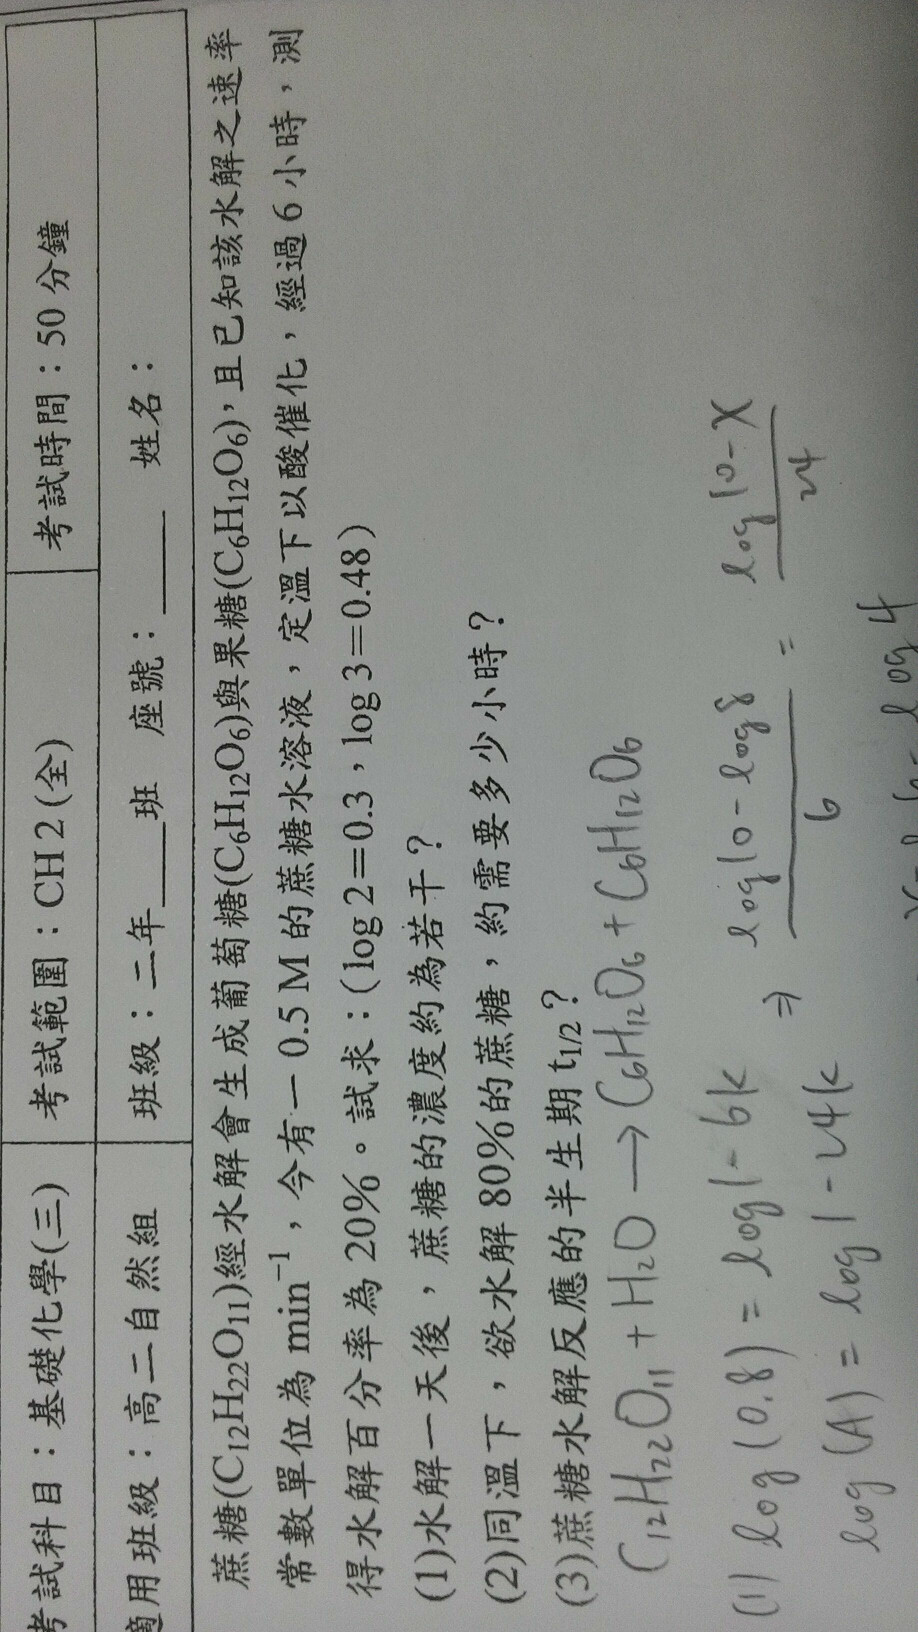 考試科目：基礎化學(三) 考試範圍：CH 2 (全) 考試時間：50 分鐘
適用班級：高二自然組 班級：二年___班 座號：____ 姓名：
蔗糖(C₁₂H₂₂O₁₁)經水解會生成葡萄糖(C₆H₁₂O₆)與果糖(C₆H₁₂O₆)，且已知該水解之速率
常數單位為 min⁻¹，今有一 0.5 M 的蔗糖水溶液，定溫下以酸催化，經過 6 小時，測
得水解百分率為 20%。試求：(log 2＝0.3，log 3＝0.48)
(1)水解一天後，蔗糖的濃度約為若干？
(2)同溫下，欲水解 80%的蔗糖，約需要多少小時？
(3)蔗糖水解反應的半生期 t₁/₂？
C₁₂H₂₂O₁₁ + H₂O → C₆H₁₂O₆ + C₆H₁₂O₆
(1) log (0.8) = log 1 - 6k ⇒ (log 10 - log 8)/6 = (log 10 - X)/24
log (A) = log 1 - 24k
log 4